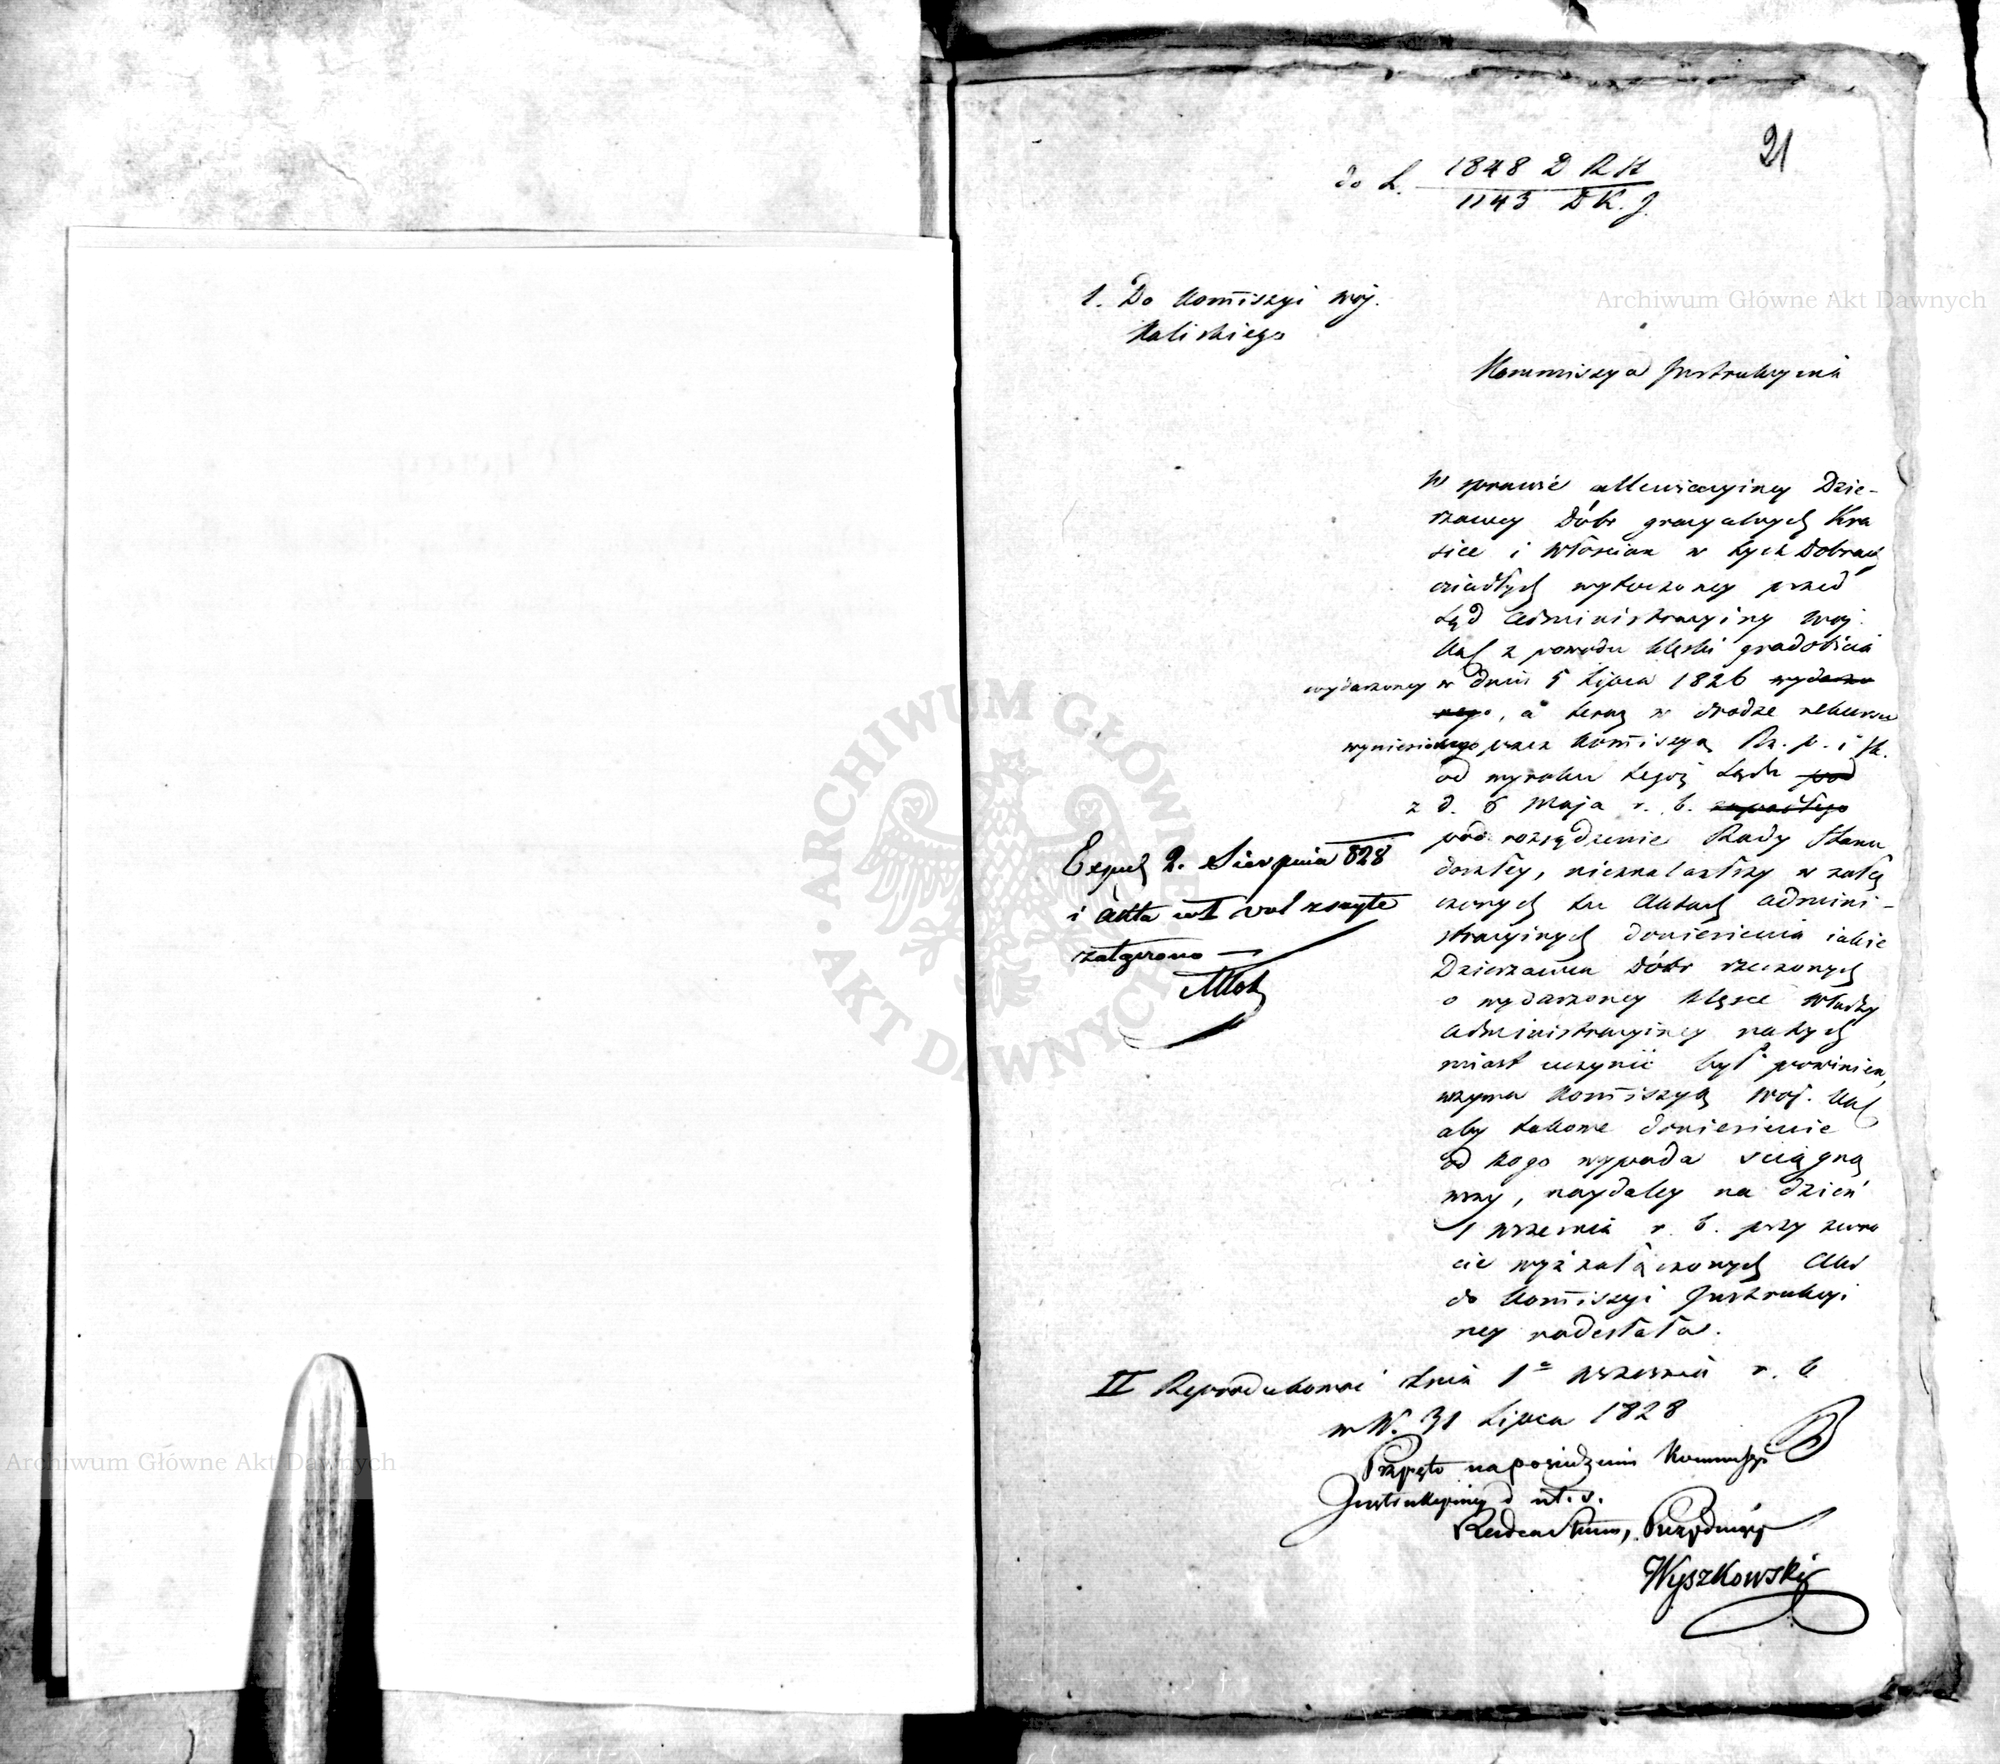 21
do L. 1848 D R H
1143 D K. J.
1. Do Kommiszyi woj.
Kaliskiego
Archiwum Główne Akt Dawnych
Kommiszya Instrukcyina
W sprawie allewiacyiney Dzie-
rzawcy Dóbr gracyalnych Kra
sice i Włościan w tych Dobrach
osiadłych wytoczoney przed
Sąd Administracyiny woj.
Kal z powodu klęski gradobicia
wydarzoney w dniu 5 Lipca 1826 wydarzo
nego, a teraz w drodze rekursu
wyniesionego przez Kommiszyą Rz. p. i Sk.
od wyroku tegoż Sądu pod
z d. 6 Maja r. b. zapadłego
pod rozsądzenie Rady Stanu
doszłey, nieznalazłszy w załą
czonych tu Aktach admini-
stracyinych doniesienia jakie
Dzierzawca Dóbr rzeczonych
o wydarzoney klęsce Władzy
Administracyiney natych
miast uczynić był powinien,
wzywa Kommiszyą Woj. Kal
aby takowe doniesienie
od kogo wypada ściągną
wszy, naydaley na dzień
1 września r. b. przy zwro
cie wyż załączonych Akt
do Kommiszyi Instrukcyi
ney nadesłała.
Exped 2. Sierpnia 828
i Akta vol zszyte
załączono
II Reprodukować dnia 1º września r. b
w W. 31 Lipca 1828
Przyięto na posiedzeniu Kommiszyi
Instrukcyiney d. ut. s.
Radca Stanu, Prezyduiący
Wyszkowski
Archiwum Główne Akt Dawnych
ARCHIWUM GŁÓWNE AKT DAWNYCH